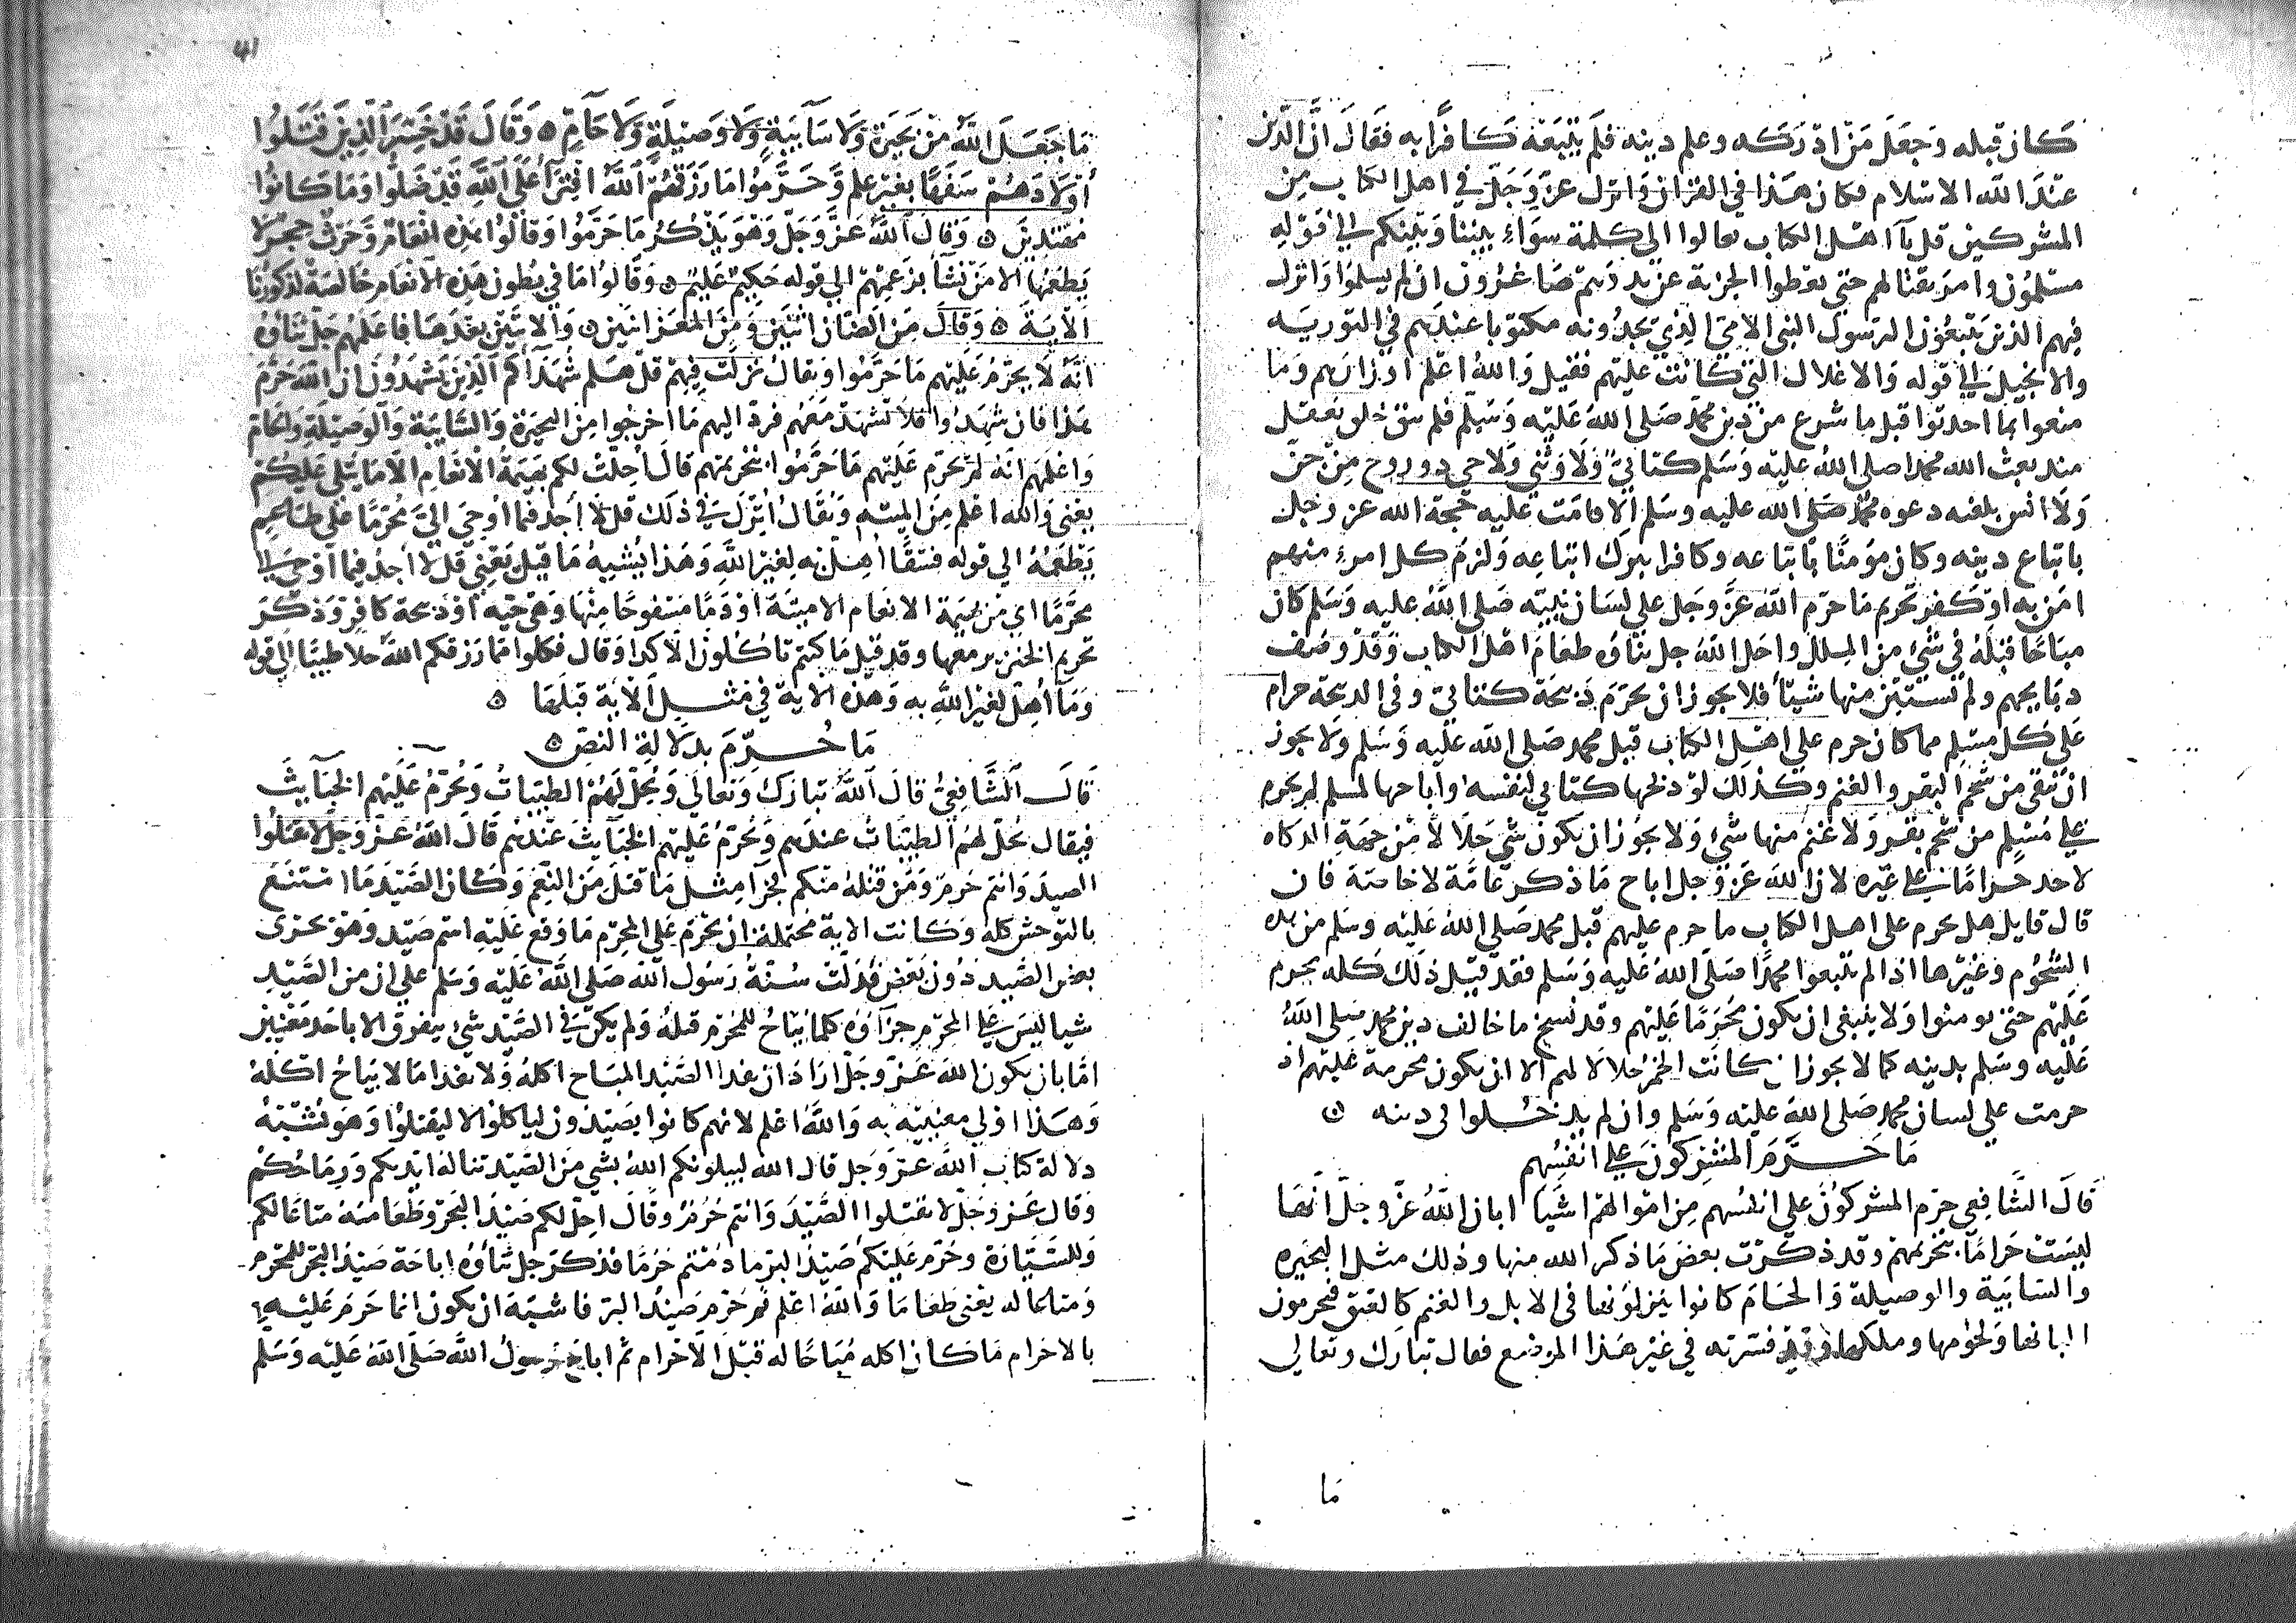 كان قبله وجعل من ادركه وعلم دينه فلم يتبعه كافرا به فقال ان الدين
عند الله الاسلام فكان هذا في القران وانزل عز وجل في اهل الكتاب من
المشركين قل يا اهل الكتاب تعالوا الى كلمة سواء بيننا وبينكم الى قوله
مسلمون وامر بقتالهم حتى يعطوا الجزية عن يد وهم صاغرون ان لم يسلموا وانزل
فيهم الذين يتبعون الرسول النبي الامي الذي يجدونه مكتوبا عندهم في التورية
والانجيل الى قوله والاغلال التي كانت عليهم فقيل والله اعلم اوزارهم وما
منعوا بما احدثوا قبل ما شرع من دين محمد صلى الله عليه وسلم فلم يبق خلق يعقل
منذ بعث الله محمدا صلى الله عليه وسلم كتابي ولا وثني ولا حي ذو روح من جن
ولا انس بلغته دعوة محمد صلى الله عليه وسلم الا قامت عليه حجة الله عز وجل
باتباع دينه وكان مؤمنا باتباعه وكافرا بترك اتباعه ولزم كل امرء منهم
امن به او كفر تحريم ما حرم الله عز وجل على لسان نبيه صلى الله عليه وسلم كان
مباحا قبله في شئ من الملل واحل الله جل ثناؤه طعام اهل الكتاب وقد وصف
ذبايحهم ولم يستثن منها شيئا فلا يجوز ان تحرم ذبيحة كتابي وفي الذبيحة حرام
على كل مسلم مما كان حرم على اهل الكتاب قبل محمد صلى الله عليه وسلم ولا يجوز
ان يبقى من شحم البقر والغنم وكذلك لو ذبحها كتابي لنفسه واباحها لمسلم لم يحرم
على مسلم من شحم بقر ولا غنم منها شئ ولا يجوز ان يكون شئ حلالا من جهة الذكاة
لاحد حراما على غيره لان الله عز وجل اباح ما ذكر عامة لا خاصة فان
قال قايل هل يحرم على اهل الكتاب ما حرم عليهم قبل محمد صلى الله عليه وسلم من هذه
الشحوم وغيرها اذا لم يتبعوا محمدا صلى الله عليه وسلم فقد قيل ذلك كله يحرم
عليهم حتى يومنوا ولا ينبغي ان يكون محرما عليهم وقد نسخ ما خالف دين محمد صلى الله
عليه وسلم بدينه كما لا يجوز ان كانت الخمر حلالا لهم الا ان يكون محرمة عليهم اذ
حرمت على لسان محمد صلى الله عليه وسلم وان لم يدخلوا في دينه
ما حرم المشركون على انفسهم
قال الشافعي حرم المشركون على انفسهم من اموالهم اشيا ابان الله عز وجل انها
ليست حراما بتحريمهم وقد ذكرت بعض ما ذكر الله منها وذلك مثل البحيرة
والسايبة والوصيلة والحام كانوا ينزلونها في الابل والغنم كالعتق فيحرمون
البانها ولحومها وملكها وقد فسرته في غير هذا الموضع فقال تبارك وتعالى
ما
41
ما جعل الله من بحيرة ولا سايبة ولا وصيلة ولا حام وقال قد خسر الذين قتلوا
اولادهم سفها بغير علم وحرموا ما رزقهم الله افتراء على الله قد ضلوا وما كانوا
مهتدين وقال الله عز وجل وهو يذكر ما حرموا وقالوا هذه انعام وحرث حجر لا
يطعمها الا من نشأ بزعمهم الى قوله حكيم عليم وقالوا ما في بطون هذه الانعام خالصة لذكورنا
الاية وقال من الضان اثنين ومن المعز اثنين والايتين بعدها فاعلمهم جل ثناؤه
انه لا يحرم عليهم ما حرموا ويقال نزلت فيهم قل هلم شهداكم الذين يشهدون ان الله حرم
هذا فان شهدوا فلا تشهد معهم فرد اليهم ما اخرجوا من البحيرة والسايبة والوصيلة والحام
واعلمهم انه لم يحرم عليهم ما حرموا بتحريمهم قال احلت لكم بهيمة الانعام الا ما يتلى عليكم
يعنى والله اعلم من الميتة ويقال انزل في ذلك قل لا اجد فيما اوحي الي محرما على طاعم
يطعمه الى قوله فسقا اهل به لغير الله وهذا يشبه ما قيل يعني قل لا اجد فيما اوحي الي
محرما اي من بهيمة الانعام الا ميتة او دما مسفوحا منها وهي حية او ذبيحة كافر وذكر
تحريم الخنزير معها وقد قيل ما كنتم تاكلون الا كذا وقال فكلوا مما رزقكم الله حلالا طيبا الى قوله
وما اهل لغير الله به وهذه الاية في مثل الاية قبلها
ما حرم بدلالة النص
قال الشافعي قال الله تبارك وتعالى ويحل لهم الطيبات ويحرم عليهم الخبايث
فيقال يحل لهم الطيبات عندهم ويحرم عليهم الخبايث عندهم قال الله عز وجل لا تقتلوا
الصيد وانتم حرم ومن قتله منكم فجزا مثل ما قتل من النعم وكان الصيد ما امتنع
بالتوحش كله وكانت الاية محتملة ان يحرم على المحرم ما وقع عليه اسم صيد وهو يجزى
بعض الصيد دون بعض فدلت سنة رسول الله صلى الله عليه وسلم على ان من الصيد
شيا ليس على المحرم جزاؤه كلما يباح للمحرم قتله ولم يكن في الصيد شئ يتفرق الا باحد معنيين
اما بان يكون الله عز وجل اراد ان يفدا الصيد المباح اكله ولا يفدا ما لا يباح اكله
وهذا اولى معنييه به والله اعلم لانهم كانوا يصيدون لياكلوا لا ليقتلوا وهو يشبه
دلالة كتاب الله عز وجل قال الله ليبلونكم الله بشي من الصيد تناله ايديكم ورماحكم
وقال عز وجل لا تقتلوا الصيد وانتم حرم وقال احل لكم صيد البحر وطعامه متاعا لكم
وللسيارة وحرم عليكم صيد البر ما دمتم حرما فذكر جل ثناؤه اباحة صيد البحر للمحرم
ومتاعا له يعنى طعاما والله اعلم ثم حرم صيد البر فاشبه ان يكون انما حرم عليه
بالاحرام ما كان اكله مباحا له قبل الاحرام ثم اباح رسول الله صلى الله عليه وسلم